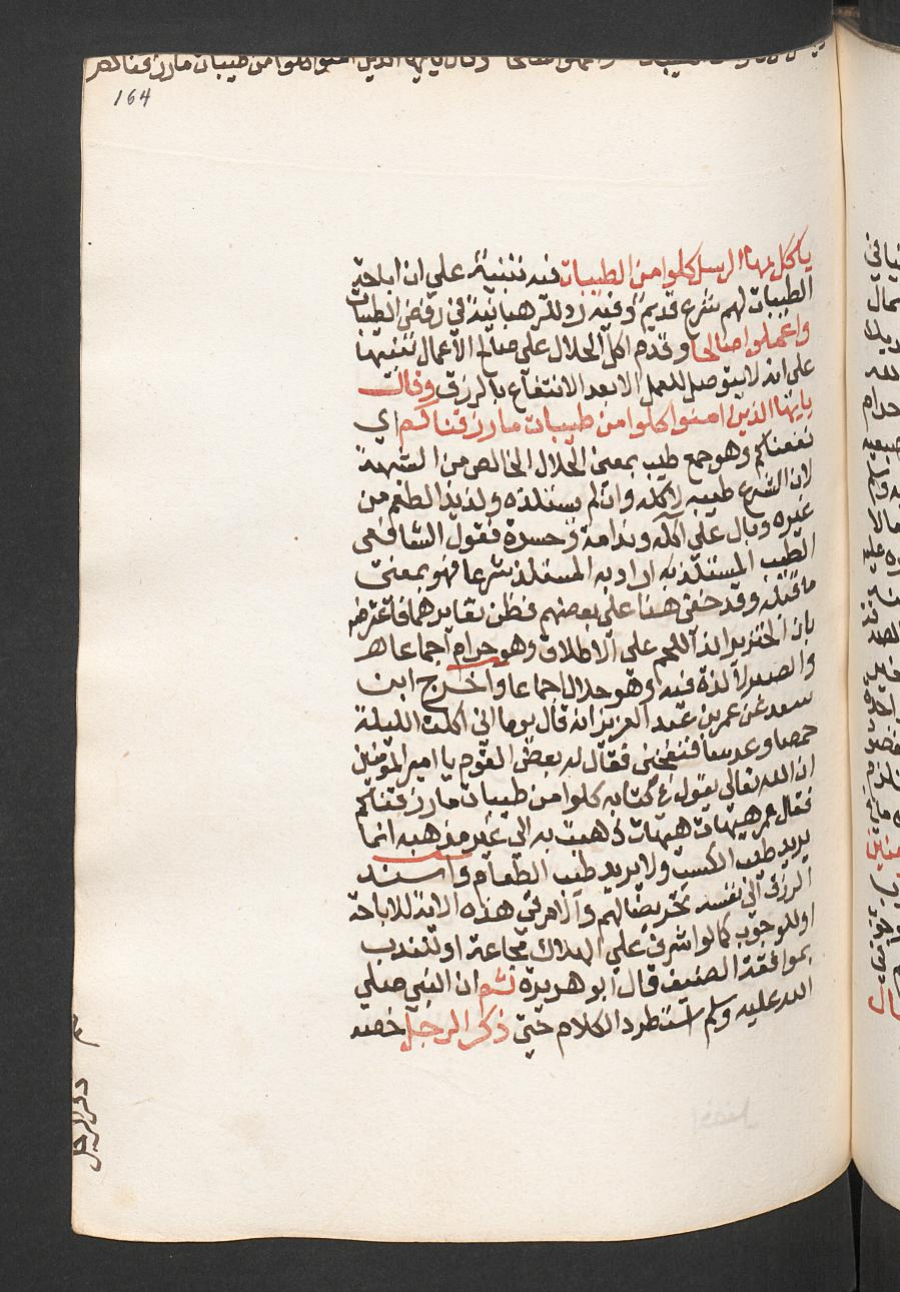 وقال يايها الذين امنوا كلوا من طيبات ما رزقناكم
164
يا ايها الرسل كلوا من الطيبات فيه تنبيه على ان اباحة
الطيبات لهم شرع قديم وفيه رد للرهبانية في رفض الطيبات
واعملوا صالحا وقدم اكل الحلال على صالح الاعمال تنبيها
على انه لا يتوصل للعمل الا بعد الانتفاع بالرزق وقال
يايها الذين امنوا كلوا من طيبات ما رزقناكم اي
نفعناكم وهو جمع طيب بمعنى الحلال الخالص من الشبهة
لان الشرع طيبه لاكله وان لم يستلذه ولذيذ الطعم من
غيره وبال على اكله وندامة وحسرة فقول الشافعي
الطيب المستلذ به اراد به المستلذ شرعا فهو بمعنى
ما قبله وقد خفي هذا على بعضهم فظن تغايرهما فاعترض
بان الخنزير الذ اللحم على الاطلاق وهو حرام اجماعا
والصبر لا لذة فيه وهو حلال اجماعا واخرج ابن
سعد عن عمر بن عبد العزيز انه قال يوما اني اكلت الليلة
حمصا وعدسا فنفخني فقال له بعض القوم يا امير المؤمنين
ان الله تعالى يقول في كتابه كلوا من طيبات ما رزقناكم
فقال عمر هيهات هيهات ذهبت به الى غير مذهبه انما
يريد طيب الكسب ولا يريد طيب الطعام واسند
الرزق الى نفسه تحريضا لهم والامر في هذه الاية للاباحة
او للوجوب كما لو اشرف على الهلاك مجاعة او للندب
بموافقة الضيف قال ابو هريرة ثم ان النبي صلى
الله عليه وسلم استطرد الكلام حتى ذكر الرجل خصه
ذكر الرجل